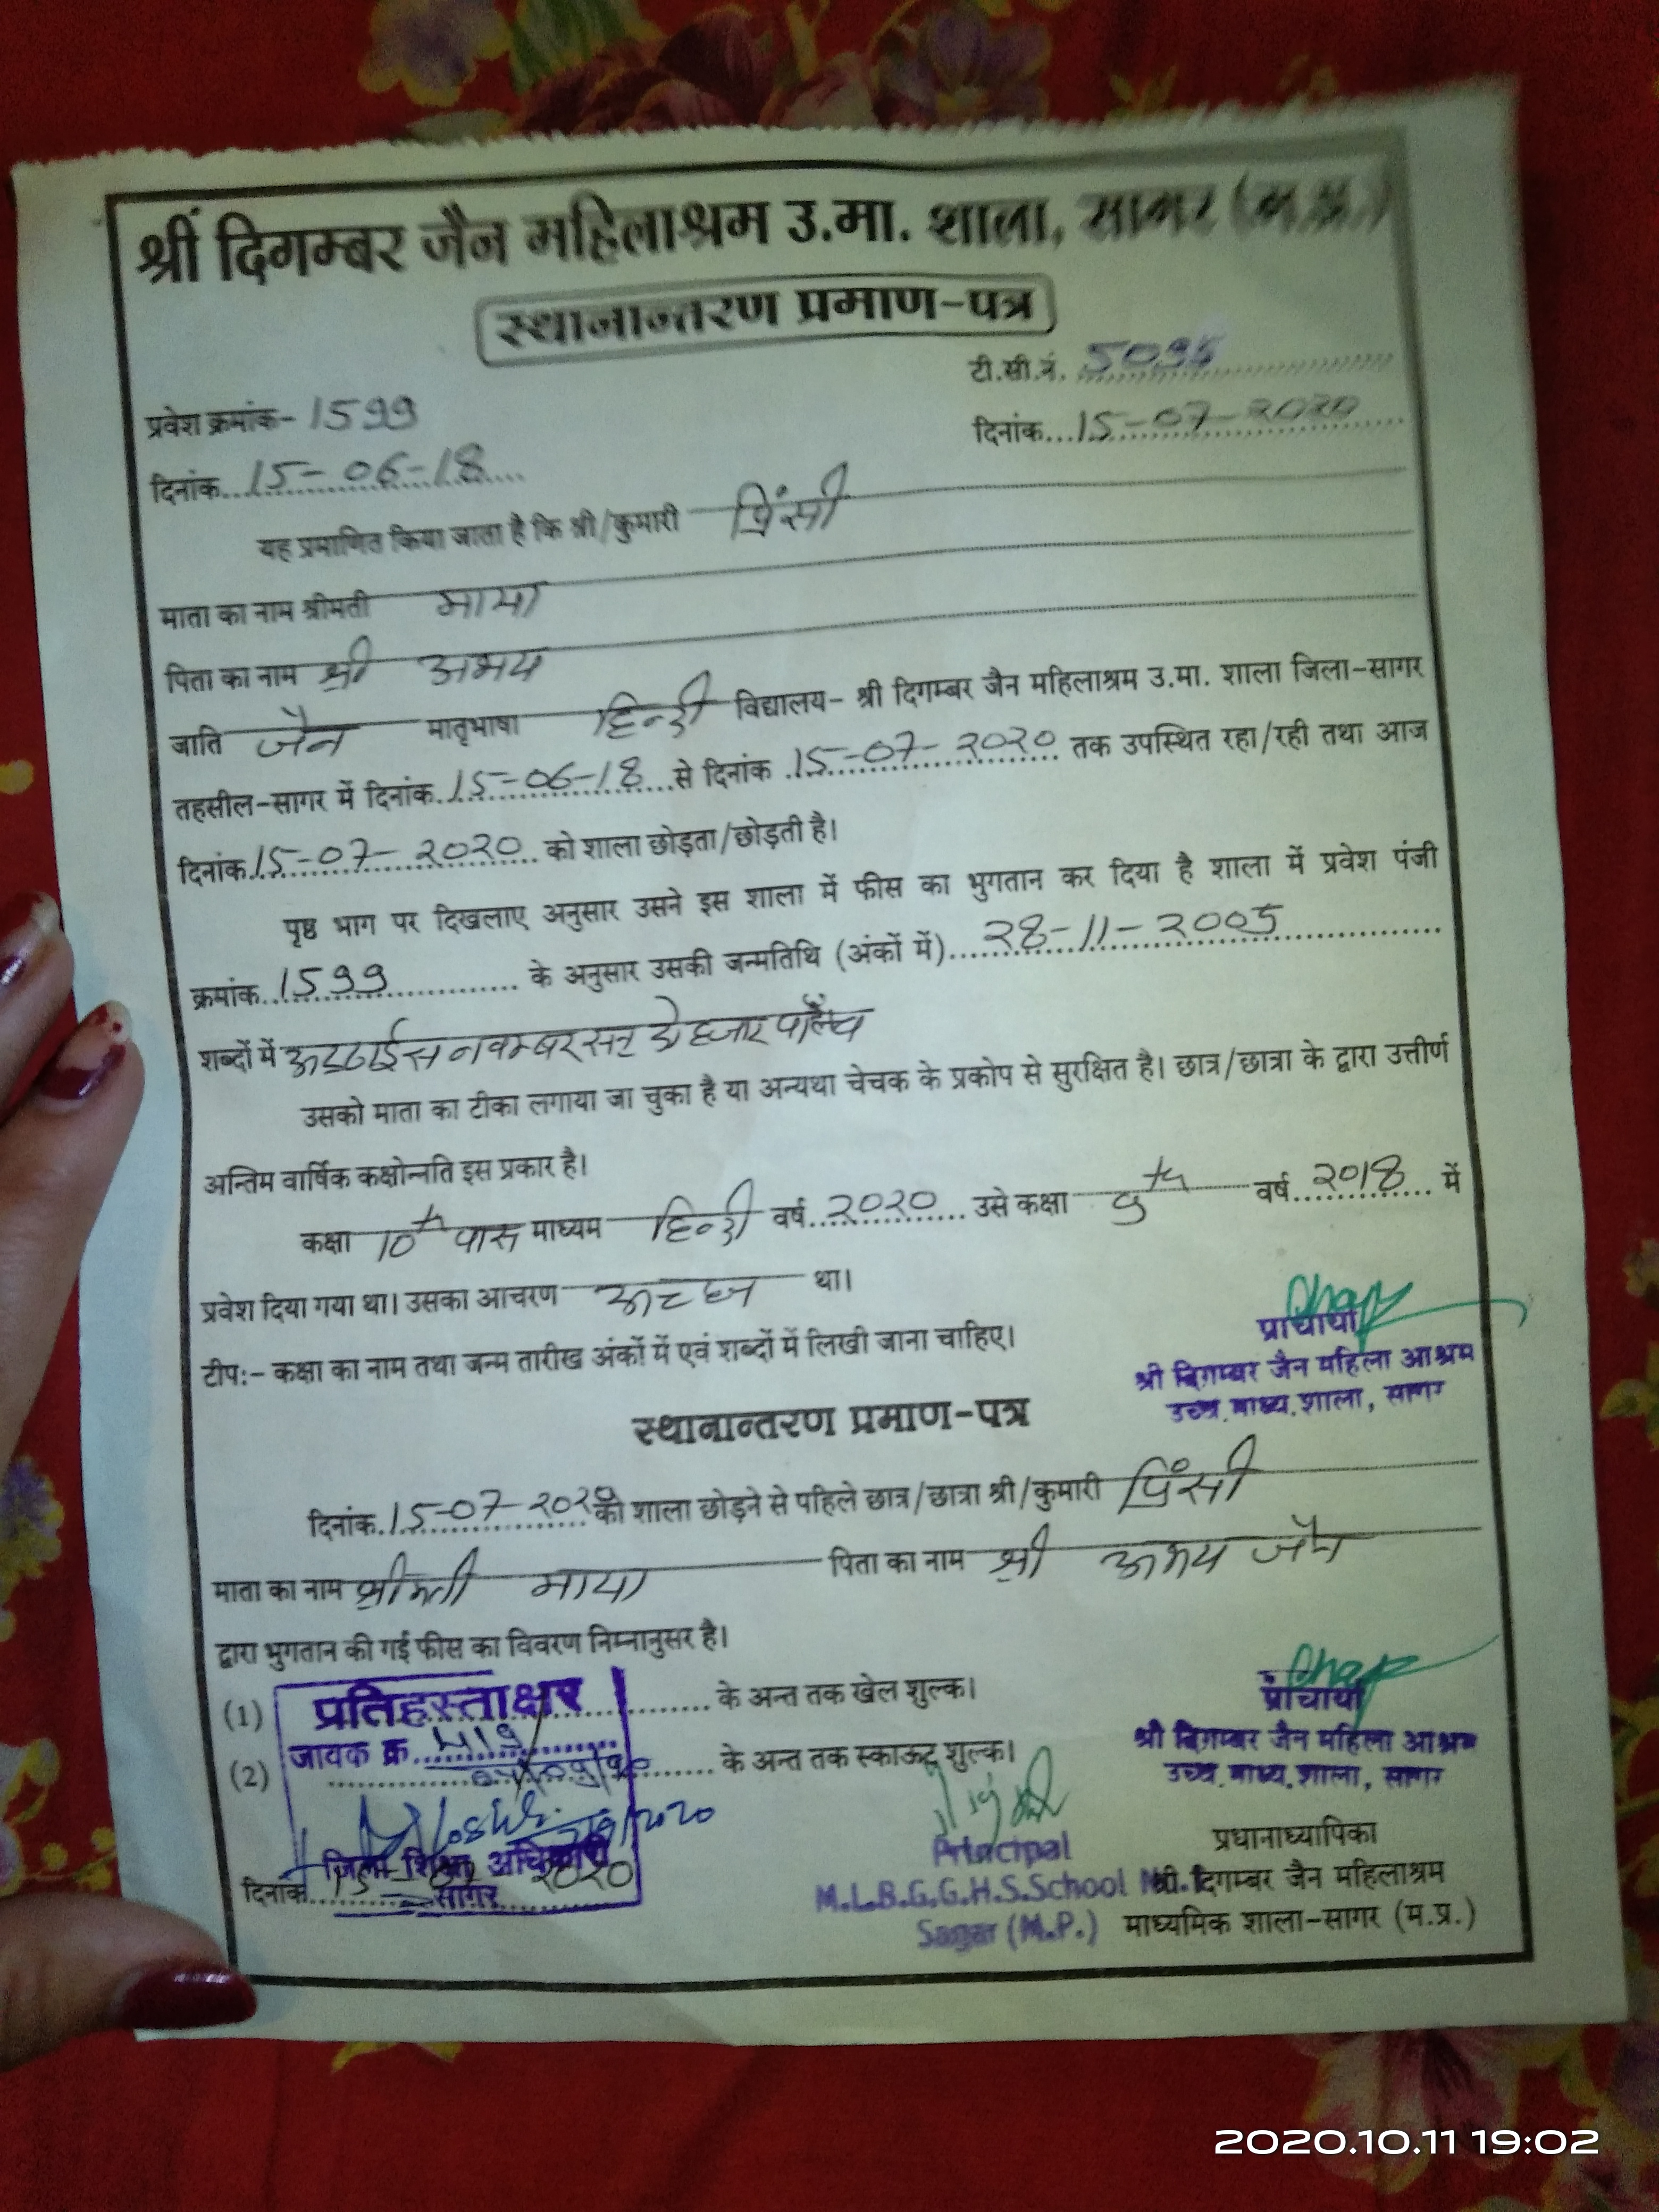 श्री दिगम्बर जैन महिलाश्रम उ.मा. शाला, सागर (म.प्र.)
स्थानान्तरण प्रमाण-पत्र
टी.सी.नं. 5095
प्रवेश क्रमांक- 1599
दिनांक...15-07-2020
दिनांक...15-06-18....
यह प्रमाणित किया जाता है कि श्री/कुमारी प्रिंसी
माता का नाम श्रीमती माया
पिता का नाम श्री अभय
जाति जैन मातृभाषा हिन्दी विद्यालय- श्री दिगम्बर जैन महिलाश्रम उ.मा. शाला जिला-सागर
तहसील-सागर में दिनांक..15-06-18...से दिनांक .15-07-2020 तक उपस्थित रहा/रही तथा आज
दिनांक.15-07-2020.. को शाला छोड़ता/छोड़ती है।
पृष्ठ भाग पर दिखलाए अनुसार उसने इस शाला में फीस का भुगतान कर दिया है शाला में प्रवेश पंजी
क्रमांक...1599............... के अनुसार उसकी जन्मतिथि (अंकों में)....28-11-2005..............
शब्दों में अठ्ठाईस नवम्बर सन् दो हजार पाँच
उसको माता का टीका लगाया जा चुका है या अन्यथा चेचक के प्रकोप से सुरक्षित है। छात्र/छात्रा के द्वारा उत्तीर्ण
अन्तिम वार्षिक कक्षोन्नति इस प्रकार है।
कक्षा 10th पास माध्यम हिन्दी वर्ष..2020.... उसे कक्षा 9th वर्ष...2018... में
प्रवेश दिया गया था। उसका आचरण अच्छा था।
टीप:- कक्षा का नाम तथा जन्म तारीख अंकों में एवं शब्दों में लिखी जाना चाहिए।
प्राचार्या
श्री दिगम्बर जैन महिला आश्रम
उच्च. माध्य. शाला, सागर
स्थानान्तरण प्रमाण-पत्र
दिनांक..15-07-2020 को शाला छोड़ने से पहिले छात्र/छात्रा श्री/कुमारी प्रिंसी
माता का नाम श्रीमती माया पिता का नाम श्री अभय जैन
द्वारा भुगतान की गई फीस का विवरण निम्नानुसर है।
(1) .......... के अन्त तक खेल शुल्क।
(2) .......... के अन्त तक स्काऊट शुल्क।
प्रतिहस्ताक्षर
जावक क्र.
जिला शिक्षा अधिकारी
सागर
प्राचार्या
श्री दिगम्बर जैन महिला आश्रम
उच्च. माध्य. शाला, सागर
Principal
M.L.B.G.G.H.S.School
Sagar (M.P.)
प्रधानाध्यापिका
श्री. दिगम्बर जैन महिलाश्रम
माध्यमिक शाला-सागर (म.प्र.)
दिनांक 2020
2020.10.11 19:02